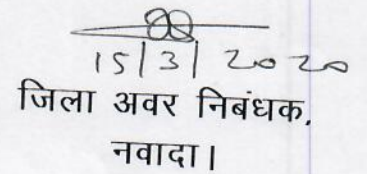 15/3/2020
जिला अवर निबंधक,
नवादा।